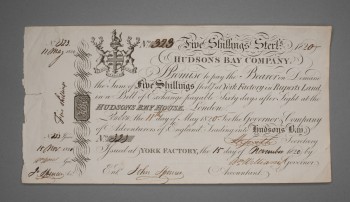 No. 323 Five Shillings Sterlg. 1820
HUDSONS BAY COMPANY.
I Promise to pay the Bearer on Demand
the Sum of Five Shillings Sterlg. at York Factory in Ruperts Land
in a Bill of Exchange payable Sixty days after Sight at the
HUDSONS BAY HOUSE London
London the 11th day of May 1820 for the Governor & Company
of Adventurers of England Trading into Hudsons Bay.
Secretary
Issued at YORK FACTORY, the 15 day of November 1820
Governor
Entd. John Spencer
323
11 May
Five shillings